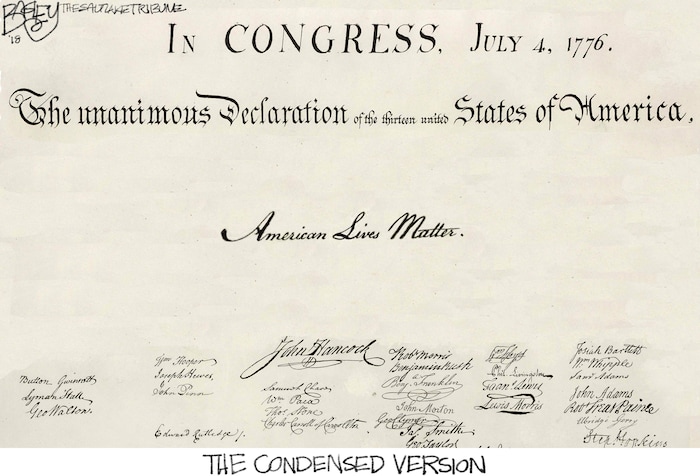 BAGLEY THE SALT LAKE TRIBUNE
'18
IN CONGRESS, JULY 4, 1776.
The unanimous Declaration of the thirteen united States of America,
American Lives Matter.
Button Gwinnett
Lyman Hall
Geo Walton.
Wm Hooper
Joseph Hewes,
John Penn
Edward Rutledge /.
John Hancock
Samuel Chase
Wm Paca
Thos Stone
Charles Carroll of Carrollton
Robt Morris
Benjamin Rush
Benj. Franklin
John Morton
Geo Clymer
Jas. Smith
Geo. Taylor
Wm Floyd
Phil. Livingston
Frans. Lewis
Lewis Morris
Josiah Bartlett
Wm Whipple
Saml Adams
John Adams
Robt Treat Paine
Elbridge Gerry
Step. Hopkins
THE CONDENSED VERSION